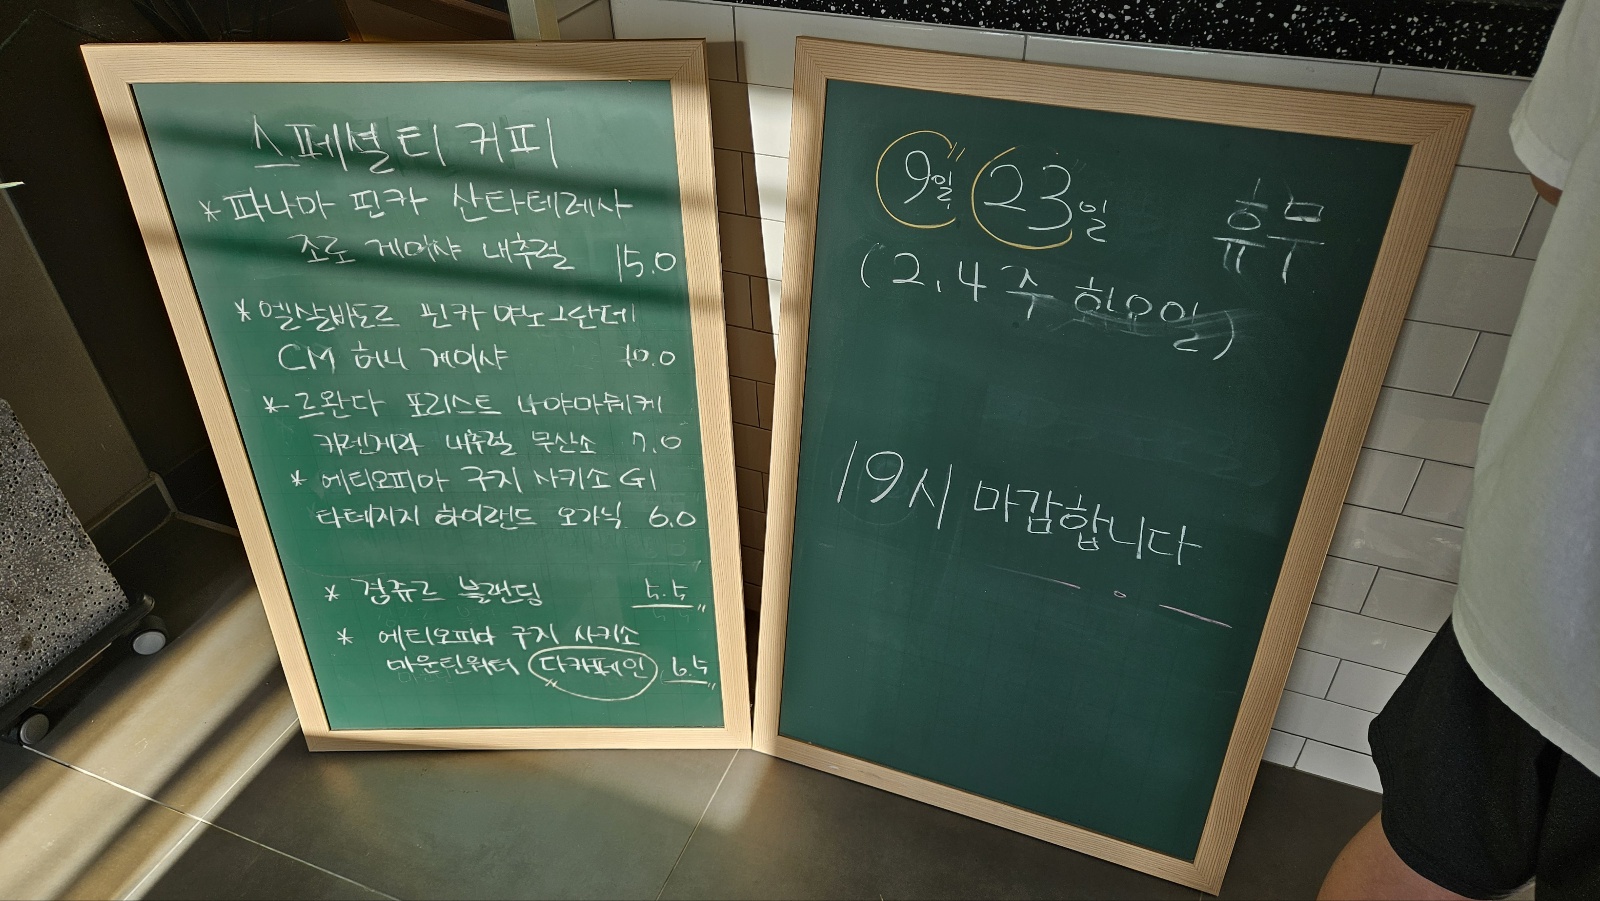 스페셜티 커피
* 파나마 핀카 산타테레사
조로 게이샤 내추럴 15.0
* 엘살바도르 핀카 마노그란데
CM 허니 게이샤 10.0
* 르완다 포리스트 나야마쉬케
카렌게라 내추럴 무산소 7.0
* 에티오피아 구지 사키소 G1
타데지지 하이랜드 오가닉 6.0
* 블랜딩 5.5"
* 에티오피아 구지 사키소
마운틴워터 디카페인 6.5"
9일 23일 휴무
(2.4 주 화요일)
19시 마감합니다